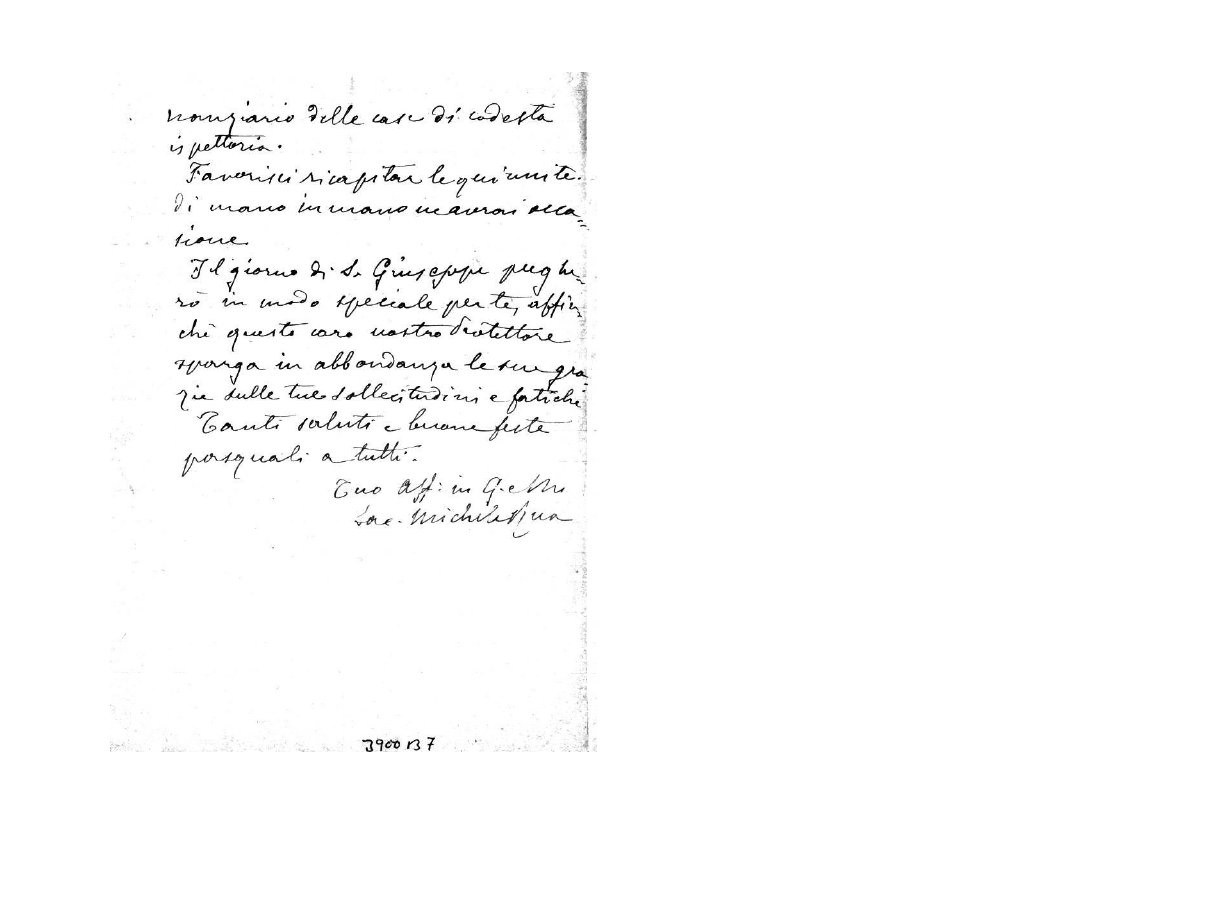 nanziario delle case di codesta
ispettoria.
Favorisci ricapitar le qui unite.
di mano in mano ne avrai occa=
sione.
Il giorno di S. Giuseppe preghe=
rò in modo speciale per te, affin
chè questo caro nostro Protettore
sparga in abbondanza le sue gra=
zie sulle tue sollecitudini e fatiche
Tanti saluti e buone feste
pasquali a tutti.
Tuo aff: in G. e M.
Sac. Michele Rua
3900 B 7